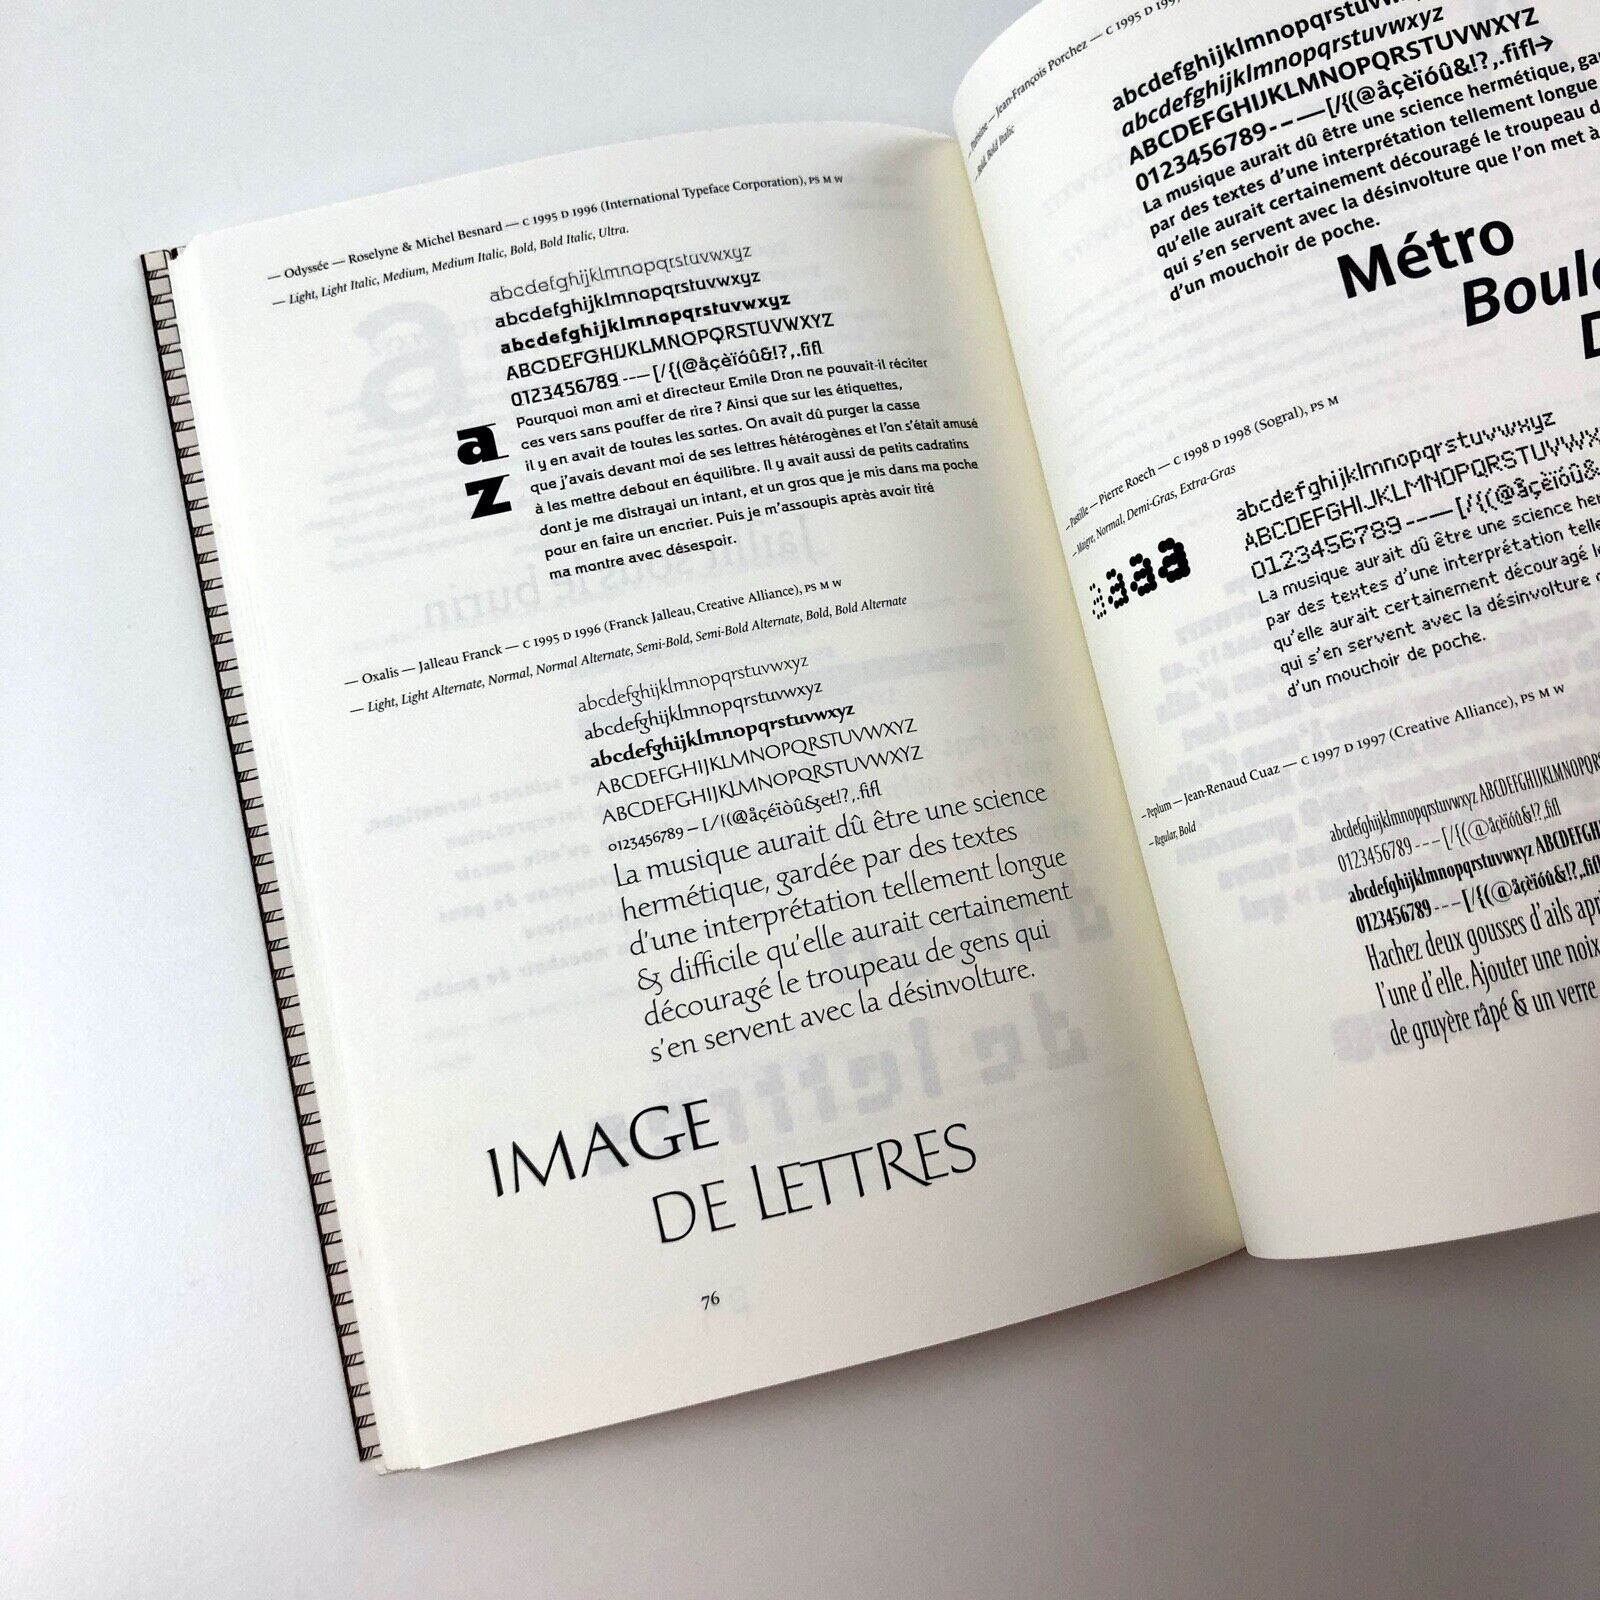 — Odyssée — Roselyne & Michel Besnard — C 1995 D 1996 (International Typeface Corporation), PS M W
— Light, Light Italic, Medium, Medium Italic, Bold, Bold Italic, Ultra.
abcdefghijklmnopqrstuvwxyz
abcdefghijklmnopqrstuvwxyz
abcdefghijklmnopqrstuvwxyz
ABCDEFGHIJKLMNOPQRSTUVWXYZ
0123456789 --— [/{(@åçèïóû&!?,.fifl
a
z
Pourquoi mon ami et directeur Emile Dron ne pouvait-il réciter
ces vers sans pouffer de rire ? Ainsi que sur les étiquettes,
il y en avait de toutes les sortes. On avait dû purger la casse
que j'avais devant moi de ses lettres hétérogènes et l'on s'était amusé
à les mettre debout en équilibre. Il y avait aussi de petits cadratins
dont je me distrayai un intant, et un gros que je mis dans ma poche
pour en faire un encrier. Puis je m'assoupis après avoir tiré
ma montre avec désespoir.
— Oxalis — Jalleau Franck — C 1995 D 1996 (Franck Jalleau, Creative Alliance), PS M W
— Light, Light Alternate, Normal, Normal Alternate, Semi-Bold, Semi-Bold Alternate, Bold, Bold Alternate
abcdefghijklmnopqrstuvwxyz
abcdefghijklmnopqrstuvwxyz
abcdefghijklmnopqrstuvwxyz
ABCDEFGHIJKLMNOPQRSTUVWXYZ
ABCDEFGHIJKLMNOPQRSTUVWXYZ
0123456789 — [/{(@åçéïòû&et!?,.fifl
La musique aurait dû être une science
hermétique, gardée par des textes
d'une interprétation tellement longue
& difficile qu'elle aurait certainement
découragé le troupeau de gens qui
s'en servent avec la désinvolture.
IMAGE
DE LETTRES
76
— Jean-François Porchez — C 1995 D 1997
Bold, Bold Italic
abcdefghijklmnopqrstuvwxyz
abcdefghijklmnopqrstuvwxyz
ABCDEFGHIJKLMNOPQRSTUVWXYZ
0123456789 - – — [/{(@åçèïóû&!?,.fifl→
La musique aurait dû être une science hermétique,
par des textes d'une interprétation tellement longue
qu'elle aurait certainement découragé le troupeau
qui s'en servent avec la désinvolture que l'on met à
d'un mouchoir de poche.
Métro
— Pastille — Pierre Roech — C 1998 D 1998 (Sogral), PS M
— Maigre, Normal, Demi-Gras, Extra-Gras
aaaa
abcdefghijklmnopqrstuvwxyz
ABCDEFGHIJKLMNOPQRSTUVWX
0123456789 - – — [/{(@åçèïóû&
La musique aurait dû être une science
par des textes d'une interprétation
qu'elle aurait certainement découragé
qui s'en servent avec la désinvolture
d'un mouchoir de poche.
— Peplum — Jean-Renaud Cuaz — C 1997 D 1997 (Creative Alliance), PS M W
— Regular, Bold
abcdefghijklmnopqrstuvwxyz ABCDEFGHIJKLMNOPQRS
0123456789 - – — [/{(@åçèïóû&!?,.fifl
abcdefghijklmnopqrstuvwxyz ABCDEFGH
0123456789 - – — [/{(@åçèïóû&!?,.fifl
Hachez deux gousses d'ails
l'une d'elle. Ajouter une noix
de gruyère râpé & un verre